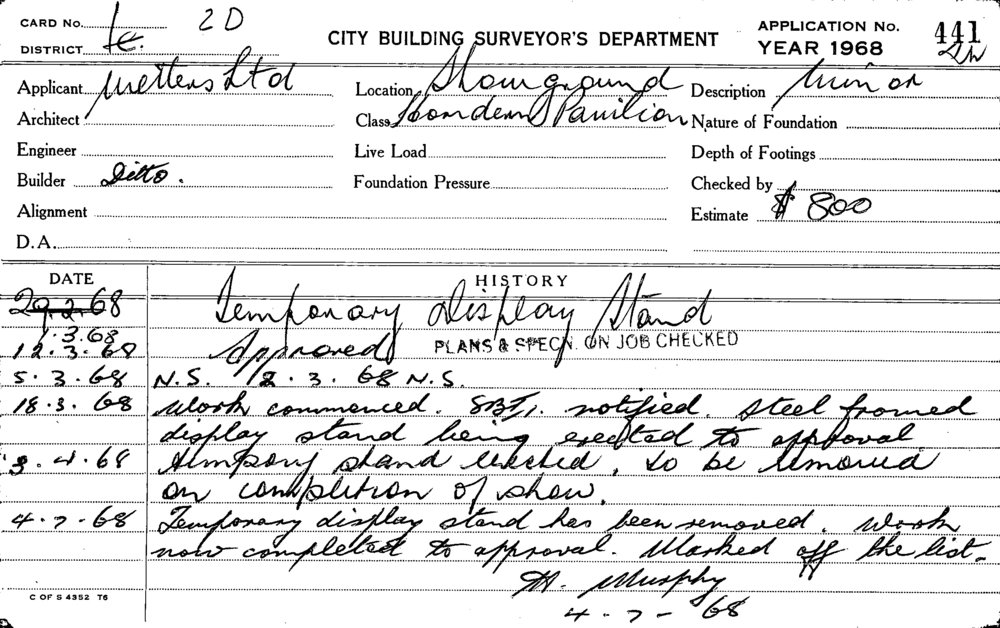 CARD No. 2D
DISTRICT
CITY BUILDING SURVEYOR'S DEPARTMENT
APPLICATION No. 441
YEAR 1968
Applicant Metters Ltd
Location Showground
Description Minor
Architect
Class Hordern Pavilion
Nature of Foundation
Engineer
Live Load
Depth of Footings
Builder Ditto.
Foundation Pressure
Checked by
Alignment
Estimate $ 800
D.A.
DATE HISTORY
29.2.68 Temporary Display Stand
1.3.68
12.3.68 Approved PLANS & SPECN. ON JOB CHECKED
5.3.68 N.S. 12.3.68 N.S.
18.3.68 Work commenced. notified. Steel framed
display stand being erected to approval
3.4.68 stand erected. to be removed
on completion of show.
4-7-68 Temporary display stand has been removed. Work
now completed to approval. Marked off the list.
Murphy
4-7-68
C OF S 4352 T6